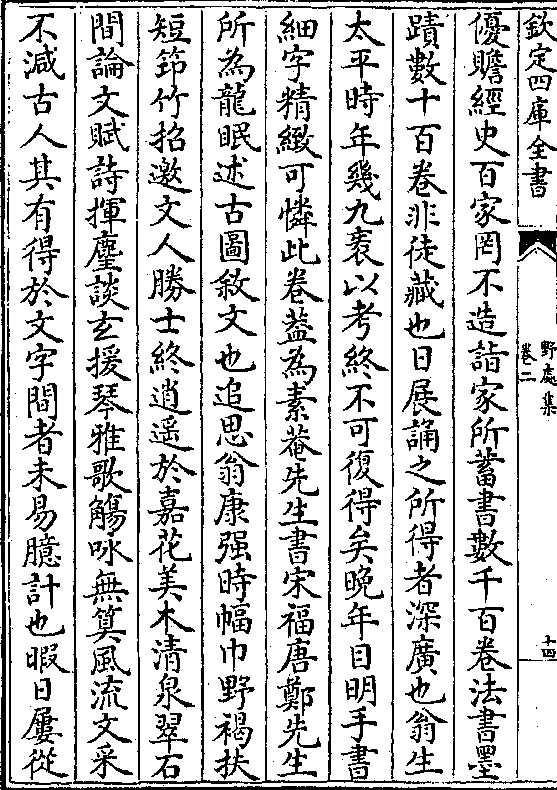 欽定四庫全書
野處集
卷二
十四
優贍經史百家罔不造詣家所蓄書數千百卷法書墨
蹟數十百卷非徒藏也日展誦之所得者深廣也翁生
太平時年幾九袠以考終不可復得矣晚年目明手書
細字精緻可憐此卷葢為素菴先生書宋福唐鄭先生
所為龍眠述古圖敘文也追思翁康强時幅巾野褐扶
短筇竹招邀文人勝士終逍遥於嘉花美木清泉翠石
間論文賦詩揮麈談玄援琴雅歌觴咏無筭風流文采
不減古人其有得於文字間者未易臆計也暇日屢從